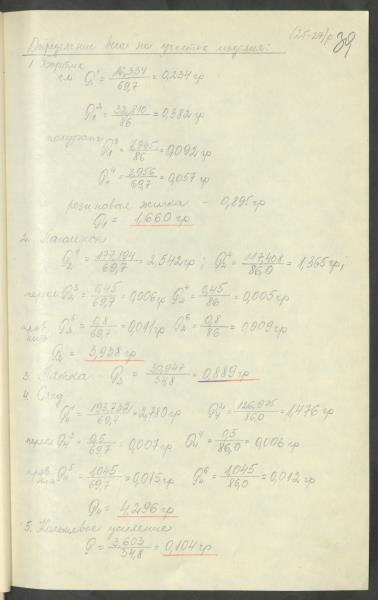 (25-27)р 39
Определение веса на участок изделия:
1. Бортик
гл. Q₁¹ = 16,334/69,7 = 0,234 гр
Q₁² = 32,810/86 = 0,382 гр
Q₁³ = /86 = 0,092 гр
Q₁⁴ = 3,956/69,7 = 0,057 гр
резиновая жилка - 0,895 гр
Q₁ = 1,660 гр
2. Паголенок
Q₂¹ = 177,194/69,7 = 2,542 гр; Q₂² = 117,408/86,0 = 1,365 гр,
Q₂³ = 0,45/69,7 = 0,006 гр Q₂⁴ = 0,45/86 = 0,005 гр
Q₂⁵ = 0,8/69,7 = 0,011 гр Q₂⁶ = 0,8/86 = 0,009 гр
Q₂ = 3,938 гр
3. Пятка - Q₃ = 30,947/34,8 = 0,889 гр
4. След
Q₄¹ = 193,782/69,7 = 2,780 гр Q₄² = 126,975/86,0 = 1,476 гр
Q₄³ = 0,5/69,7 = 0,007 гр Q₄⁴ = 0,5/86,0 = 0,006 гр
Q₄⁵ = 1,045/69,7 = 0,015 гр Q₄⁶ = 1,045/86,0 = 0,012 гр
Q₄ = 4,296 гр
5. Кольцевое усиление
Q = 3,603/34,8 = 0,104 гр